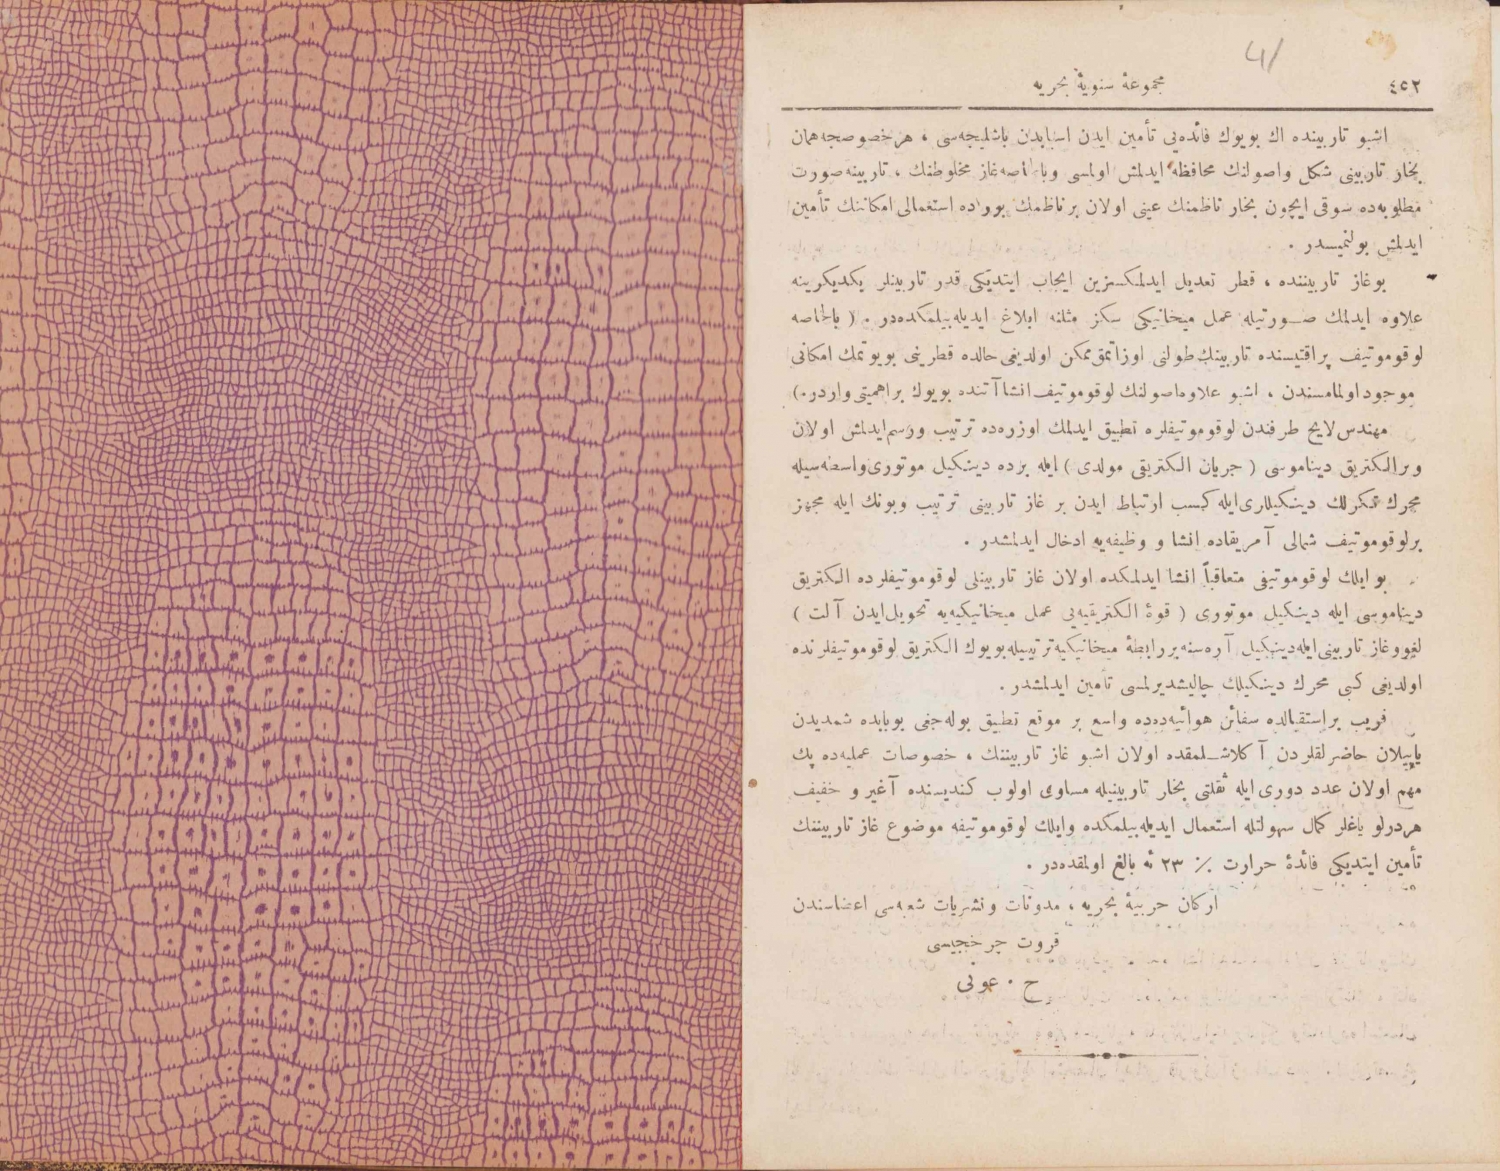 ٤٥٢
مجموعهٔ سنویهٔ بحریه
اشبو تاربینده اك بویوك فائده‌یی تأمین ایدن اسبابدن باشلیجه‌سی ، هر خصوصجه همان
بخار تاربینی شكل واصولنك محافظه ایدلمش اولمسی وبالخاصه غاز مخلوطنك ، تاربینه صورت
مطلوبه‌ده سوقی ایچون بخار ناظمنك عینی اولان بر ناظمك بوراده استعمالی امكاننك تأمین
ایدلمش بولنمیسدر .
بوغاز تاربیننده ، قطر تعدیل ایدلمكسزین ایجاب ایتدیكی قدر تاربینلر یكدیكرینه
علاوه ایدلمك صورتیله عمل میخانیكی سكز مثلنه ابلاغ ایدیله‌بیلمكده‌در . ( بالخاصه
لوقوموتیف پراقتیسنده تاربینك طولنی اوزاتمق ممكن اولدیغی حالده قطرینی بویوتمك امكانی
موجود اولمامسندن ، اشبو علاوه اصولنك لوقوموتیف انشاآتنده بویوك بر اهمیتی واردر .)
مهندس لایج طرفندن لوقوموتیفلره تطبیق ایدلمك اوزره‌ده ترتیب ورسم ایدلمش اولان
وبر الكتریق دیناموسی ( جریان الكتریقی مولدی ) ایله برده دینكیل موتوری واسطه‌سیله
محرك تكرلك دینكیللری ایله كسب ارتباط ایدن بر غاز تاربینی ترتیب وبونك ایله مجهز
برلوقوموتیف شمالی آمریقاده انشا و وظیفه‌یه ادخال ایدلمشدر .
بو ایلك لوقوموتیفی متعاقباً انشا ایدلمكده اولان غاز تاربینلی لوقوموتیفلرده الكتریق
دیناموسی ایله دینكیل موتوری ( قوهٔ الكتریقیه‌یی عمل میخانیكیه‌یه تحویل ایدن آلت )
لغو وغاز تاربینی ایله دینكیل آره‌سنه بر رابطهٔ میخانیكیه ترتیبیله بویوك الكتریق لوقوموتیفلرنده
اولدیغی كبی محرك دینكیلك چالیشدیرلمسی تأمین ایدلمشدر .
قریب بر استقبالده سفائن هوائیه‌ده‌ده واسع بر موقع تطبیق بوله‌جغی بوبابده شمدیدن
یاپیلان حاضرلقلردن آكلاشلمقده اولان اشبو غاز تاربیننك ، خصوصات عملیه‌ده پك
مهم اولان عدد دوری ایله ثقلتی بخار تاربینیله مساوی اولوب كندیسنده آغیر و خفیف
هردرلو یاغلر كمال سهولتله استعمال ایدیله‌بیلمكده وایلك لوقوموتیفه موضوع غاز تاربیننك
تأمین ایتدیكی فائدهٔ حرارت ٪ ٢٣ ئه بالغ اولمقده‌در .
اركان حربیهٔ بحریه ، مدونات ونشریات شعبه‌سی اعضاسندن
قروت چرخجیسی
ح . عونی